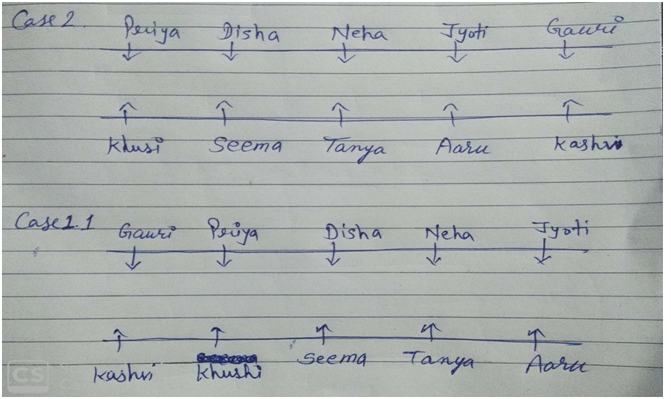 Case 2. Periya Disha Neha Jyoti Gauri
Khusi Seema Tanya Aaru Kashvi
Case 1.1 Gauri Periya Disha Neha Jyoti
Kashvi Khushi Seema Tanya Aaru
CS